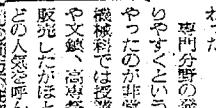 専門分野の発
りやすくという
やったのが非常
機械科では授業
や文鎮、高専祭
販売したがほと
どの人気を呼ん